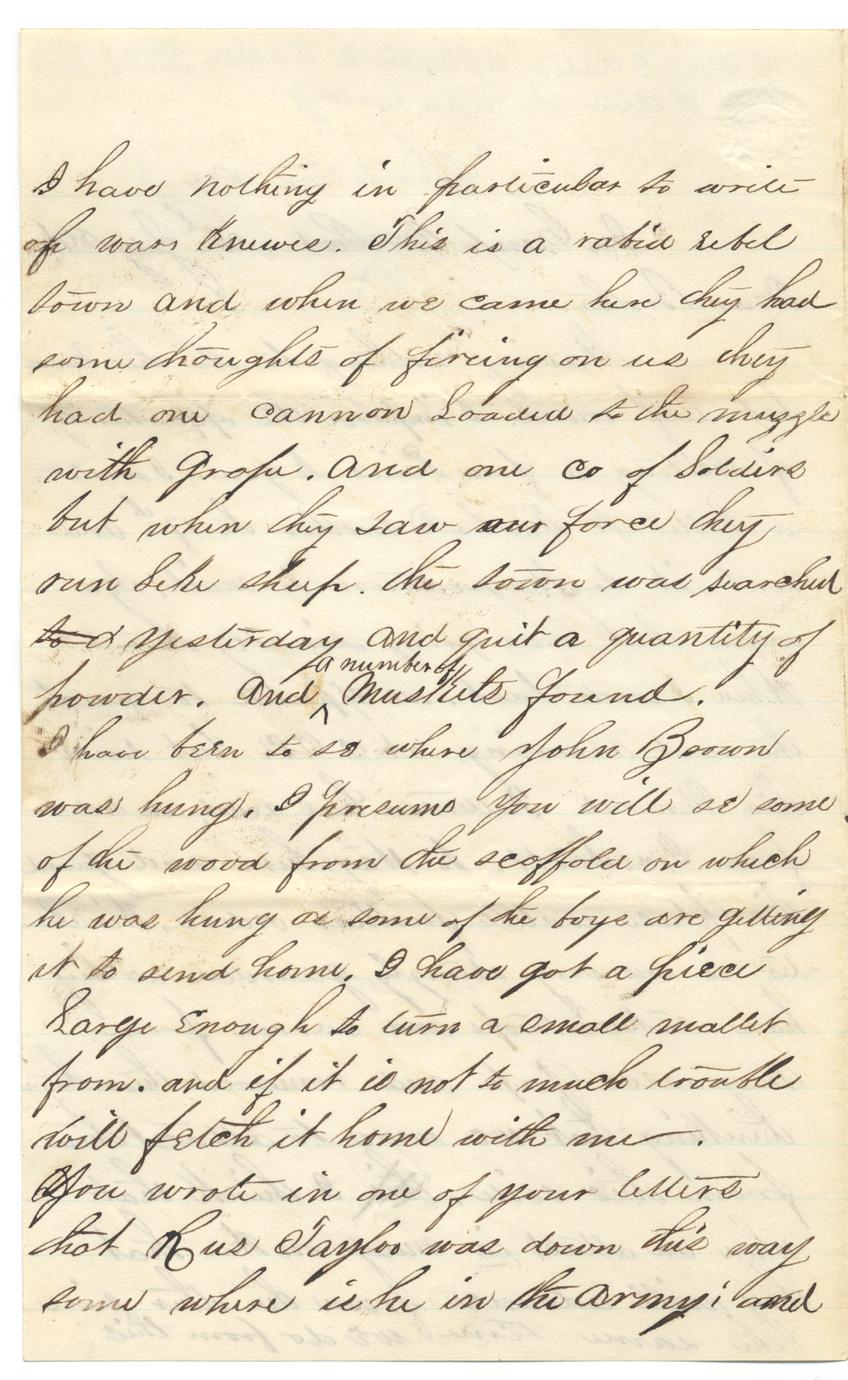 I have nothing in particular to write
of wars knewes. This is a rabid rebel
town and when we came here they had
some thoughts of fireing on us they
had one cannon Loaded to the muzzle
with Grape. And one co of Soldirs
but when they saw our force they
run like sheep. the town was searched
yesterday and quit a quantity of
powder. And a number of Muskets found.
I have been to se where John Brown
was hung. I presume you will se some
of the wood from the scoffold on which
he was hung as some of the boys are getting
it to send home. I have got a piece
Large Enough to turn a small mallet
from. and if it is not to much trouble
will fetch it home with me.
You wrote in one of your letters
that Rus Taylor was down this way
some where is he in the Army; and